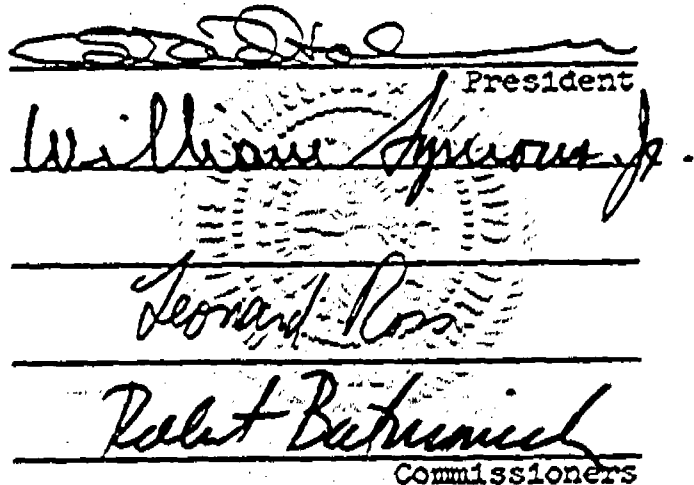 President
William Symons, Jr.
Leonard Ross
Robert Batinovich
Commissioners